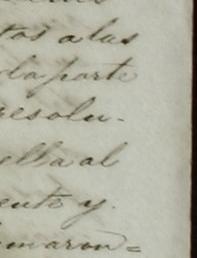 tos a las
la parte
resolu-
ella al
ente y
maron=